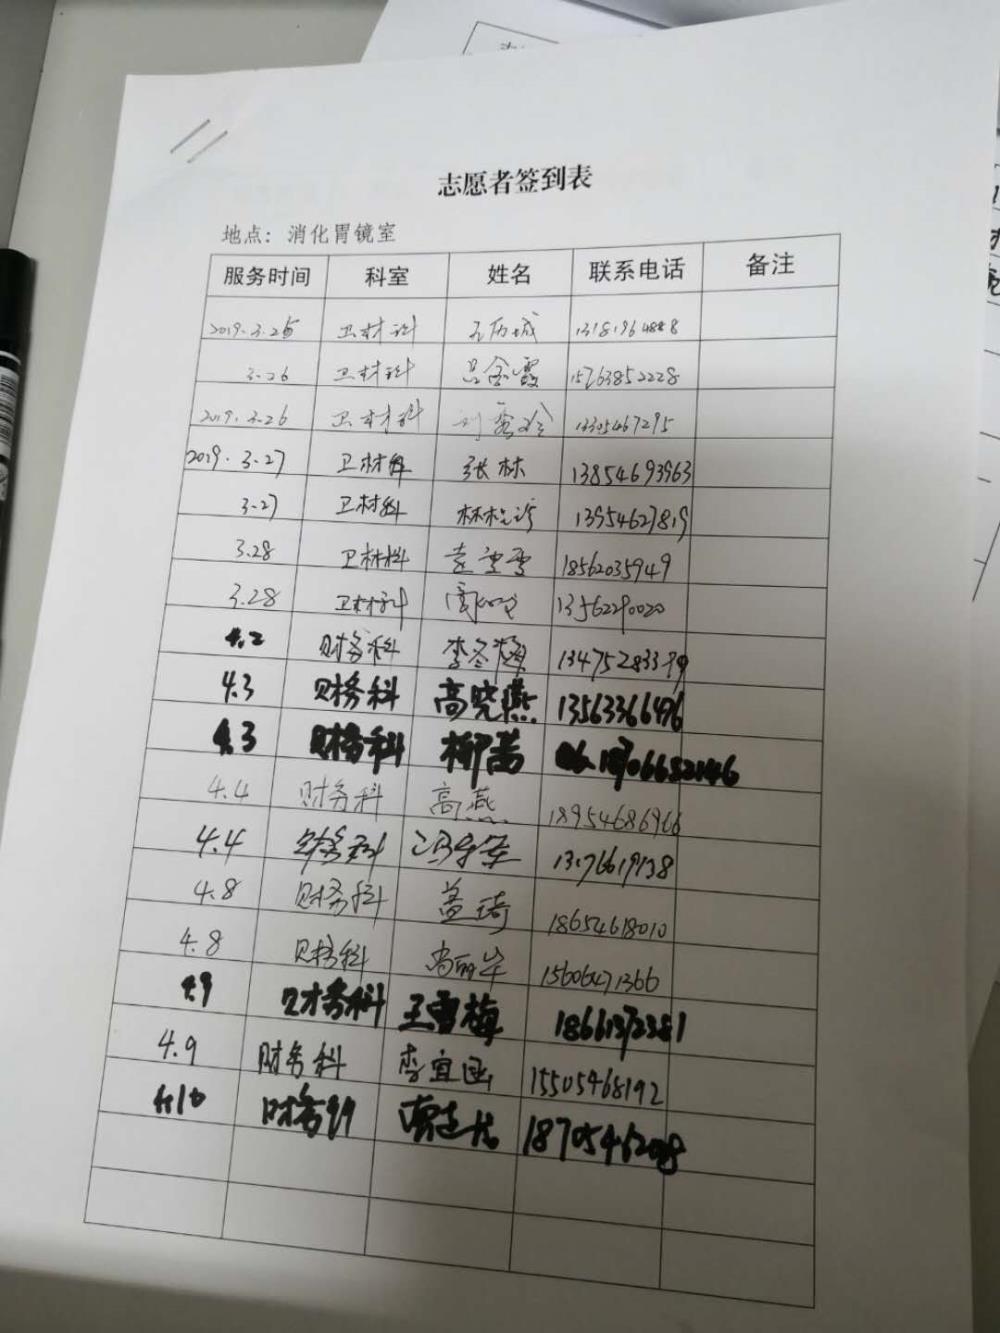 志愿者签到表
地点：消化胃镜室
服务时间 科室 姓名 联系电话 备注
2019.3.25 卫材科
3.26 卫材科 吕金霞 15763852228
2019.3.26 卫材科 13305467295
2019.3.27 卫材科 张林 13854693963
3.27 卫材科 13954627819
3.28 卫材科 18562035949
3.28 卫材科 13562290020
4.2 财务科 李冬梅
4.3 财务科 高晓燕 13563366496
4.3 财务科 柳茜 18706682146
4.4 财务科 高燕 18954686966
4.4 财务科
4.8 财务科 盖琦 18654618010
4.8 财务科 尚丽华 15606471366
4.9 财务科 王雪梅 18661372381
4.9 财务科 李宜函 15505468192
4.10 财务科